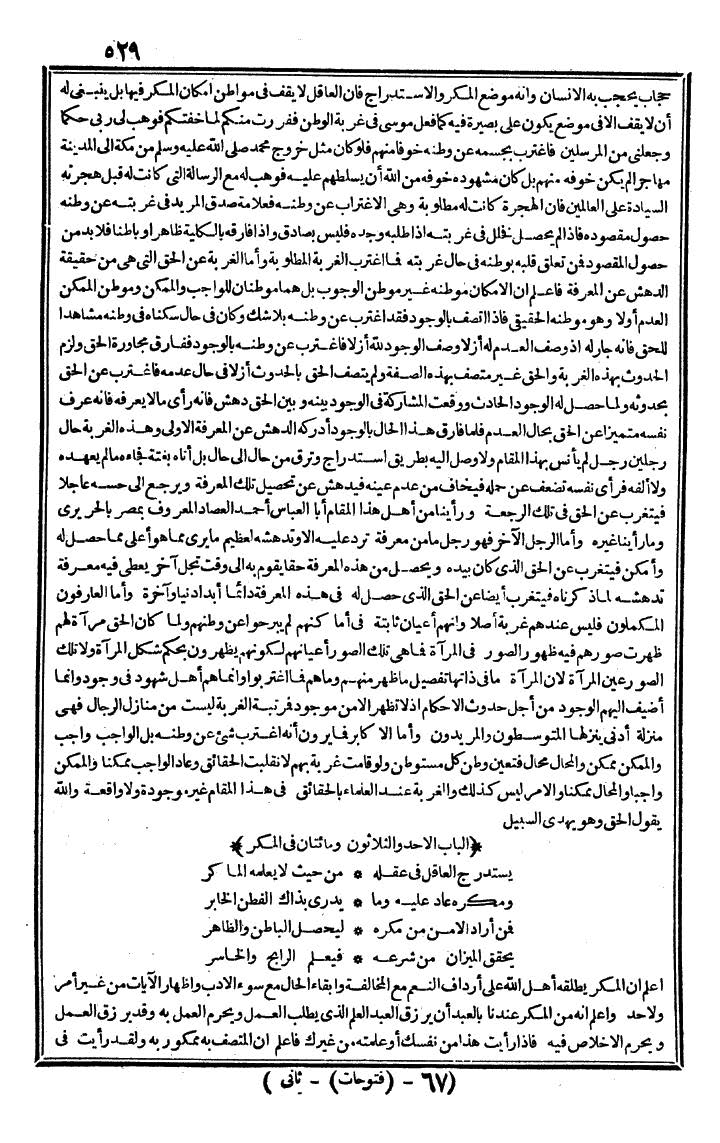 ٥٢٩
حجاب يحجب به الانسان وانه موضع المكر والاستدراج فان العاقل لا يقف فى مواطن امكان المكر فيها بل ينبغى له
أن لا يقف الا فى موضع يكون على بصيرة فيه كما فعل موسى فى غربة الوطن ففررت منكم لما خفتكم فوهب لى ربى حكما
وجعلنى من المرسلين فاغترب بجسمه عن وطنه خوفا منهم فلو كان مثل خروج محمد صلى الله عليه وسلم من مكة الى المدينة
مهاجرا لم يكن خوفه منهم بل كان مشهوده خوفه من الله أن يسلطهم عليه فوهب له مع الرسالة التى كانت له قبل هجرته
السيادة على العالمين فان الهجرة كانت له مطلوبة وهى الاغتراب عن وطنه فعلامة صدق المريد فى غربته عن وطنه
حصول مقصوده فاذا لم يحصل فلل فى غربته اذا طلبه وجده فليس بصادق واذا فارقه بالكلية ظاهرا وباطنا فلا بد من
حصول المقصود فمن تعلق قلبه بوطنه فى حال غربته فما اغترب الغربة المطلوبة وأما الغربة عن الحق التى هى من حقيقة
الدهش عن المعرفة فاعلم ان الامكان موطنه غير موطن الوجوب بل هما موطنان للواجب والممكن وموطن الممكن
العدم أولا وهو موطنه الحقيقى فاذا اتصف بالوجود فقد اغترب عن وطنه بلا شك وكان فى حال سكناه فى وطنه مشاهدا
للحق فانه جار له اذ وصف العدم له أزلا وصف الوجود لله أزلا فاغترب عن وطنه بالوجود ففارق مجاورة الحق ولزم
الحدوث بهذه الغربة والحق غير متصف بهذه الصفة ولم يتصف الحق بالحدوث أزلا فى حال عدمه فاغترب عن الحق
بحدوثه ولما حصل له الوجود الحادث ووقعت المشاركة فى الوجود بينه وبين الحق دهش فانه رأى ما لا يعرفه فانه عرف
نفسه متميزا عن الحق بحال العدم فلما فارق هذا الحال بالوجود أدركه الدهش عن المعرفة الاولى وهذه الغربة حال
رجلين رجل لم يأنس بهذا المقام ولا وصل اليه بطريق استدراج وترق من حال الى حال بل أتاه بغتة فجاءه ما لم يعهده
ولا ألفه فرأى نفسه تضعف عن حمله فيخاف من عدم عينه فيدهش عن تحصيل تلك المعرفة ويرجع الى حسه عاجلا
فيتغرب عن الحق فى تلك الرجعة ورأينا من أهل هذا المقام أبا العباس أحمد العصاد المعروف بمصر بالحريرى
وما رأينا غيره وأما الرجل الآخر فهو رجل ما من معرفة ترد عليه الا وتدهشه لعظيم ما يرى مما هو أعلى مما حصل له
وأمكن فيتغرب عن الحق الذى كان بيده ويحصل من هذه المعرفة حقا يقوم به الى وقت تجل آخر يعطى فيه معرفة
تدهشه لما ذكرناه فيتغرب أيضا عن الحق الذى حصل له فى هذه المعرفة دائما أبدا دنيا وآخرة وأما العارفون
المكملون فليس عندهم غربة أصلا وانهم أعيان ثابتة فى أما كنهم لم يبرحوا عن وطنهم ولما كان الحق مرآة لهم
ظهرت صورهم فيه ظهور الصور فى المرآة فما هى تلك الصور أعيانهم لكونهم يظهرون بحكم شكل المرآة ولا تلك
الصور عين المرآة لان المرآة ما فى ذاتها تفصيل ما ظهر منهم وما هم فما اغتربوا وانما هم أهل شهود فى وجود وانما
أضيف اليهم الوجود من أجل حدوث الاحكام اذ لا تظهر الا من موجود فرتبة الغربة ليست من منازل الرجال فهى
منزلة أدنى ينزلها المتوسطون والمريدون وأما الاكابر فما يرون أنه اغترب شئ عن وطنه بل الواجب واجب
والممكن ممكن والمحال محال فتعين وطن كل مستوطن ولو قامت غربة بهم لانقلبت الحقائق وعاد الواجب ممكنا والممكن
واجبا والمحال ممكنا والامر ليس كذلك والغربة عند العلماء بالحقائق فى هذا المقام غير موجودة ولا واقعة والله
يقول الحق وهو يهدى السبيل
﴿الباب الاحد والثلاثون ومائتان فى المكر﴾
يستدرج العاقل فى عقله * من حيث لا يعلمه الماكر
ومكره عاد عليه وما * يدرى بذاك الفطن الخابر
فمن أراد الامن من مكره * ليحصل الباطن والظاهر
يحقق الميزان من شرعه * فيعلم الرابح والخاسر
اعلم ان المكر يطلقه أهل الله على أرداف النعم مع المخالفة وابقاء الحال مع سوء الادب واظهار الآيات من غير أمر
ولا حد واعلم انه من المكر عندنا بالعبد أن يرزق العبد العلم الذى يطلب العمل ويحرم العمل به وقد يرزق العمل
ويحرم الاخلاص فيه فاذا رأيت هذا من نفسك أو علمته من غيرك فاعلم ان المتصف به ممكور به ولقد رأيت فى
(٦٧ - (فتوحات) - ثانى)